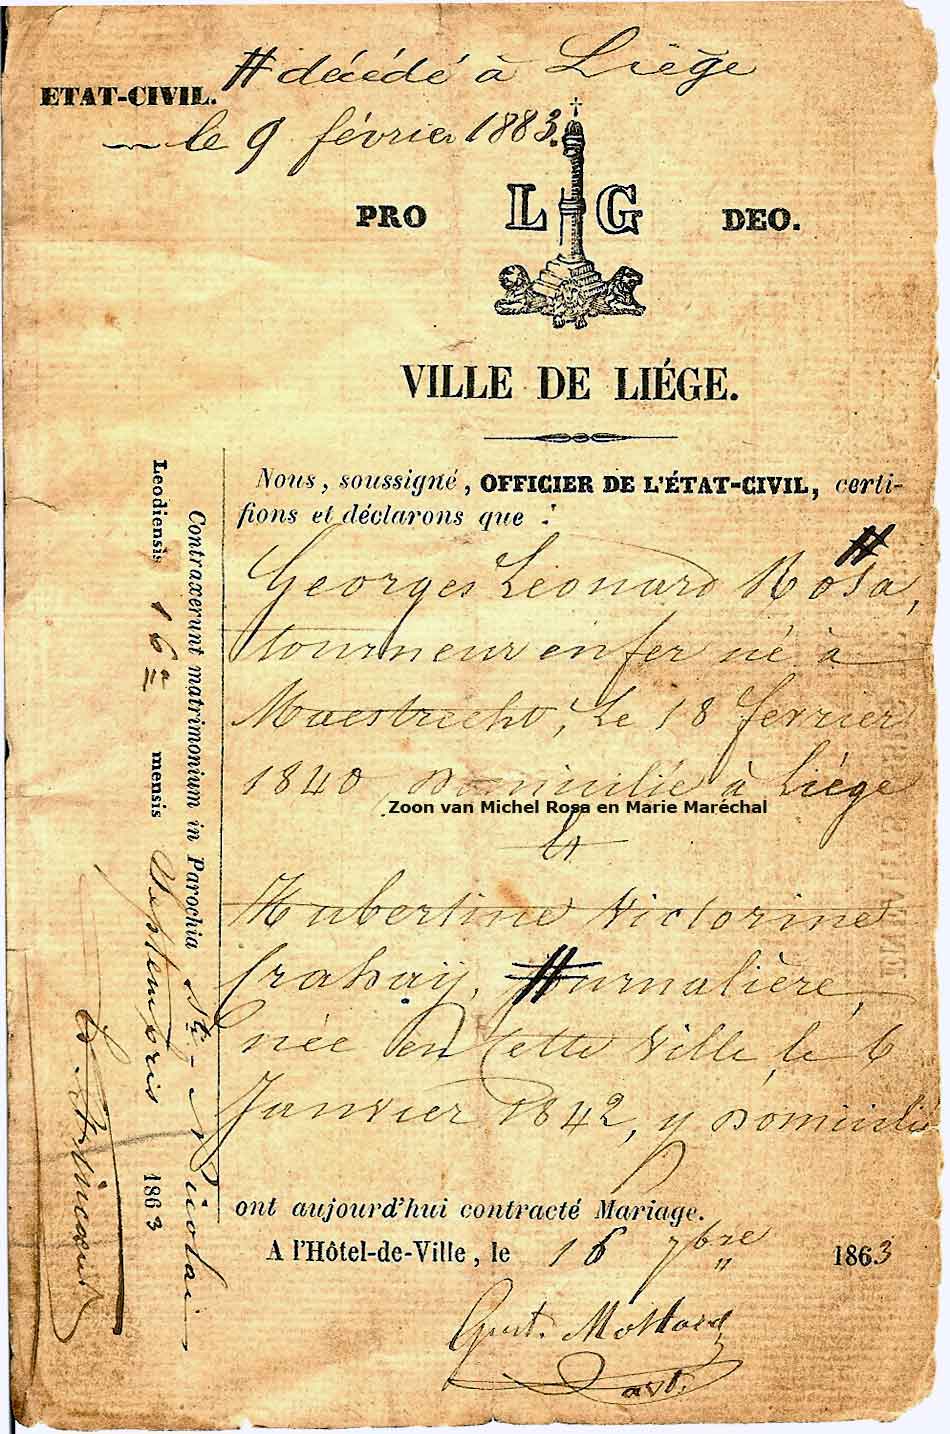 # décédé à Liège
ETAT-CIVIL.
le 9 février 1883.
PRO L G DEO.
VILLE DE LIÉGE.
Nous, soussigné, OFFICIER DE L'ÉTAT-CIVIL, certi-
fions et déclarons que :
Georges Léonard Rosa, #
tourneur en fer né à
Maestrecht, le 18 fevrier
1840, domicilié à Liége
Zoon van Michel Rosa en Marie Maréchal
et
Hubertine Victorine
Crahaÿ, # Journalière,
née en cette ville, le 6
Janvier 1842, y domicilié
ont aujourd'hui contracté Mariage.
A l'Hôtel-de-Ville, le 16 7bre 1863
Gust. Mottard
Contraxerunt matrimonium in Parochia Sti - Nicolai
Leodiensis 16a mensis Septembris 1863